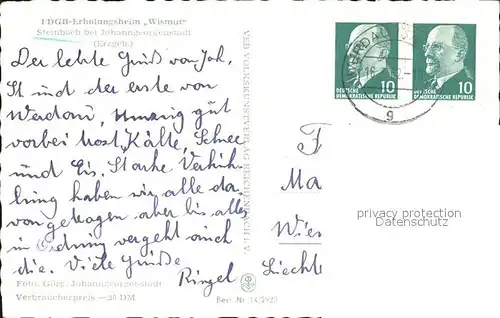 FDGB-Erholungsheim „Wismut“
Steinbach bei Johanngeorgenstadt
(Erzgeb.)
Der letzte Gruß von Joh.
St und der erste von
Werdau, gut
vorbei trotz Kälte, Schnee
und Eis. Starke Verküh-
lung haben wir alle da-
von getragen aber bis alles
in Ordnung vergeht auch
die. Viele Grüße
Ringel
Foto: Görg, Johanngeorgenstadt
Verbraucherpreis —,20 DM
VEB VOLKSKUNSTVERLAG REICHENBACH I. V.
Best. Nr. 14/5922
WERDAU
g
10
DEUTSCHE
DEMOKRATISCHE REPUBLIK
10
DEUTSCHE
DEMOKRATISCHE REPUBLIK
F
Ma
Wies
Liecht
privacy protection
Datenschutz